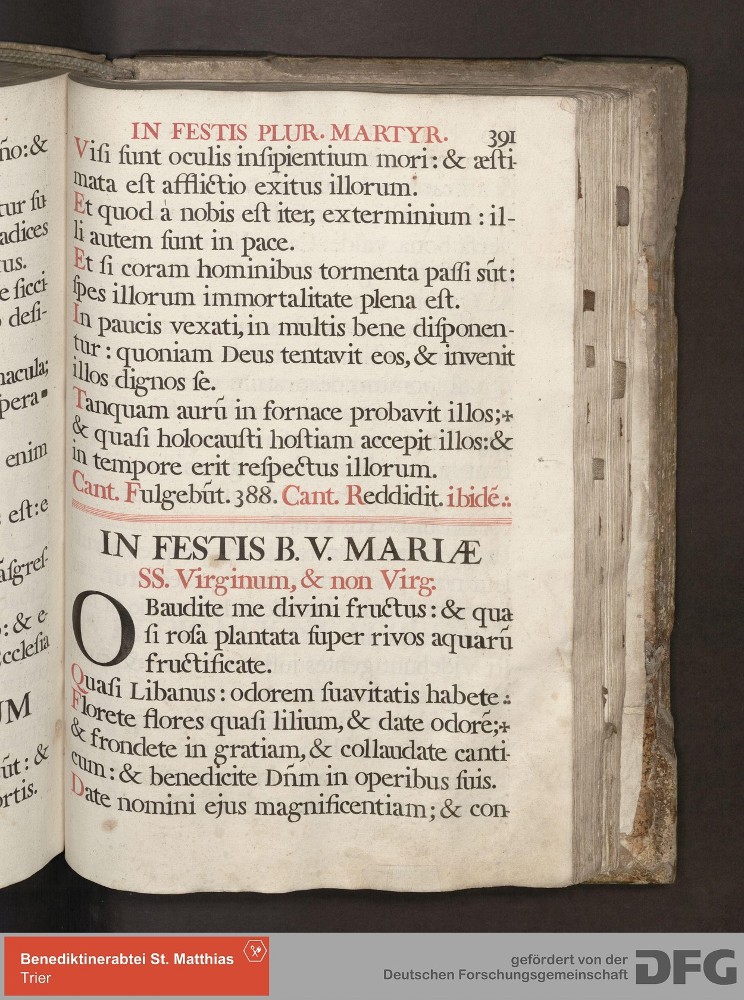 ño: &
tur fu
adices
tus.
e ficci
defi-
macula;
pera
enim
est: e
: & e
cclesia
UM
ūt: &
ortis.
IN FESTIS PLUR. MARTYR. 391
Viſi ſunt oculis inſipientium mori: & æſti-
mata eſt afflictio exitus illorum.
Et quod à nobis eſt iter, exterminium : il-
li autem ſunt in pace.
Et ſi coram hominibus tormenta paſſi sūt:
ſpes illorum immortalitate plena eſt.
In paucis vexati, in multis bene diſponen-
tur : quoniam Deus tentavit eos, & invenit
illos dignos ſe.
Tanquam aurū in fornace probavit illos;+
& quaſi holocauſti hoſtiam accepit illos: &
in tempore erit reſpectus illorum.
Cant. Fulgebūt. 388. Cant. Reddidit. ibidē.:
IN FESTIS B. V. MARIÆ
SS. Virginum, & non Virg.
OBaudite me divini fructus: & qua
ſi roſa plantata ſuper rivos aquarū
fructificate.
Quaſi Libanus: odorem ſuavitatis habete.:
Florete flores quaſi lilium, & date odorē;+
& frondete in gratiam, & collaudate canti-
cum: & benedicite Dñm in operibus ſuis.
Date nomini ejus magnificentiam; & con-
Benediktinerabtei St. Matthias
Trier
gefördert von der
Deutschen Forschungsgemeinschaft
DFG